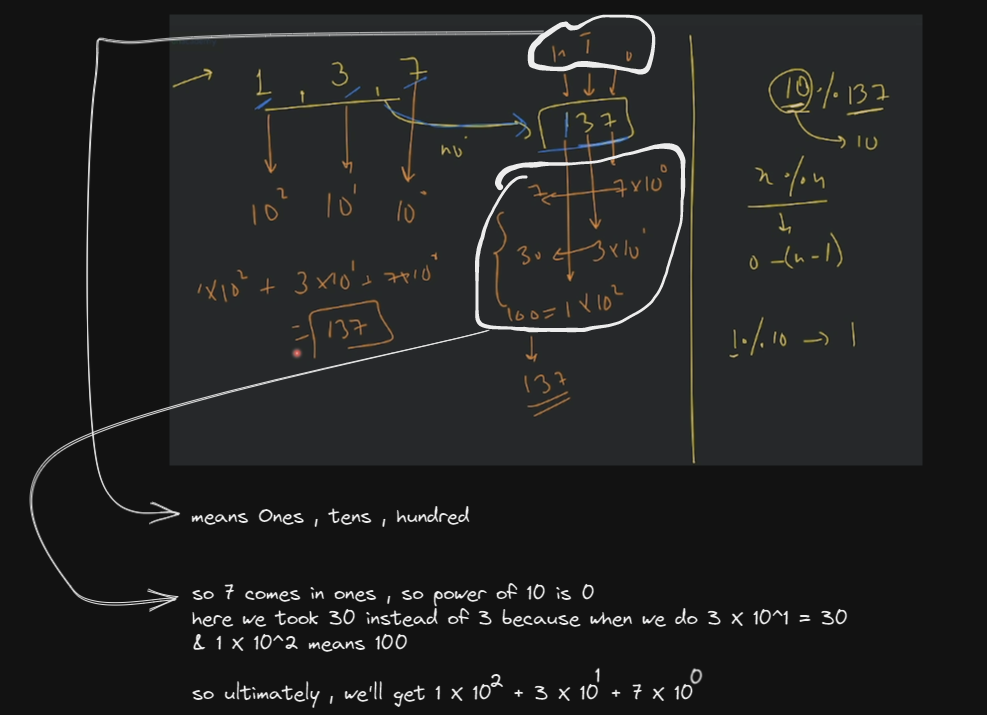 h T O
1 3 7
10² 10¹ 10⁰
no
1 3 7
7 7×10⁰
30 3×10¹
100 = 1×10²
137
1×10² + 3×10¹ + 7×10⁰
= 137
10 % 137
10
n % n
0 - (n-1)
1 % 10 → 1
means Ones , tens , hundred
so 7 comes in ones , so power of 10 is 0
here we took 30 instead of 3 because when we do 3 X 10^1 = 30
& 1 X 10^2 means 100
so ultimately , we'll get 1 X 10² + 3 X 10¹ + 7 X 10⁰